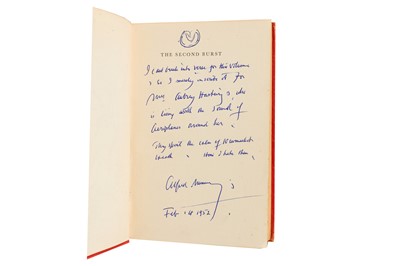 THE SECOND BURST
I cant break into verse for this volume
so I merely inscribe it for
Mrs. Aubrey Hastings, who
is living with the sound of
Aeroplanes around her.
They spoil the calm of Newmarket
Heath. How I hate them.
Alfred Munnings
Feb 1952